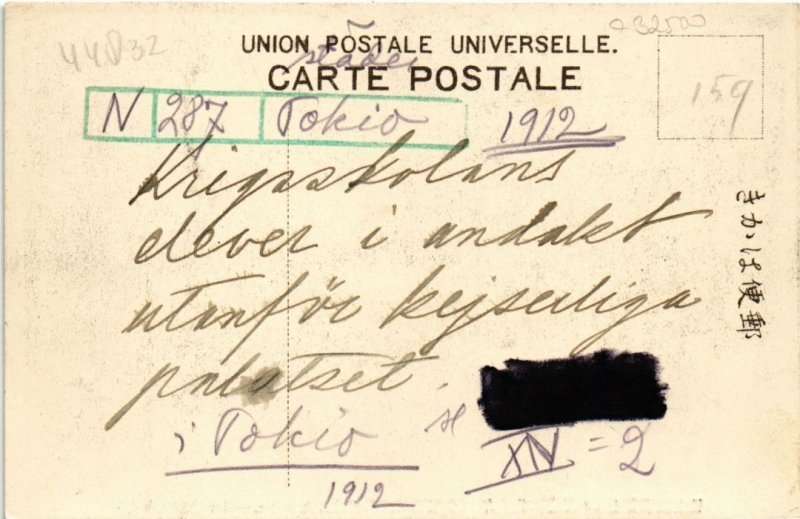 44832
032500
UNION POSTALE UNIVERSELLE.
städer
CARTE POSTALE
159
N 287 Tokio 1912
Krigsskolans
elever i andakt
utanför kejserliga
palatset.
i Tokio
XIV = 2
1912
きかは便郵